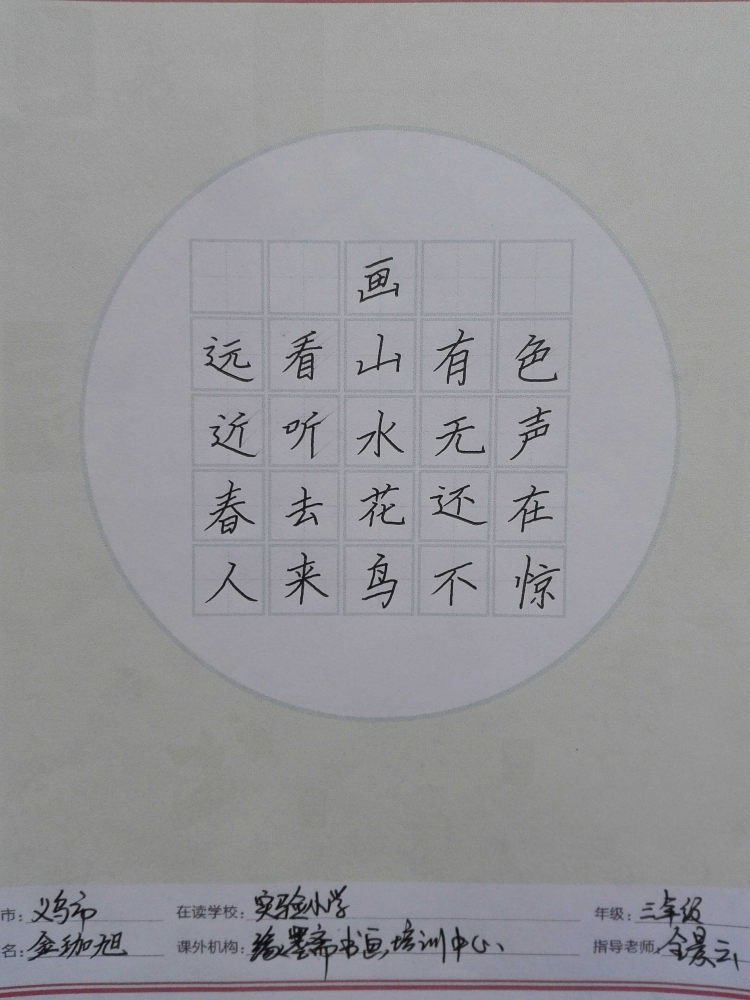 画
远看山有色
近听水无声
春去花还在
人来鸟不惊
市: 义乌市 在读学校: 实验小学 年级: 三年级
名: 金珈旭 课外机构: 缘墨斋书画培训中心 指导老师: 全景云